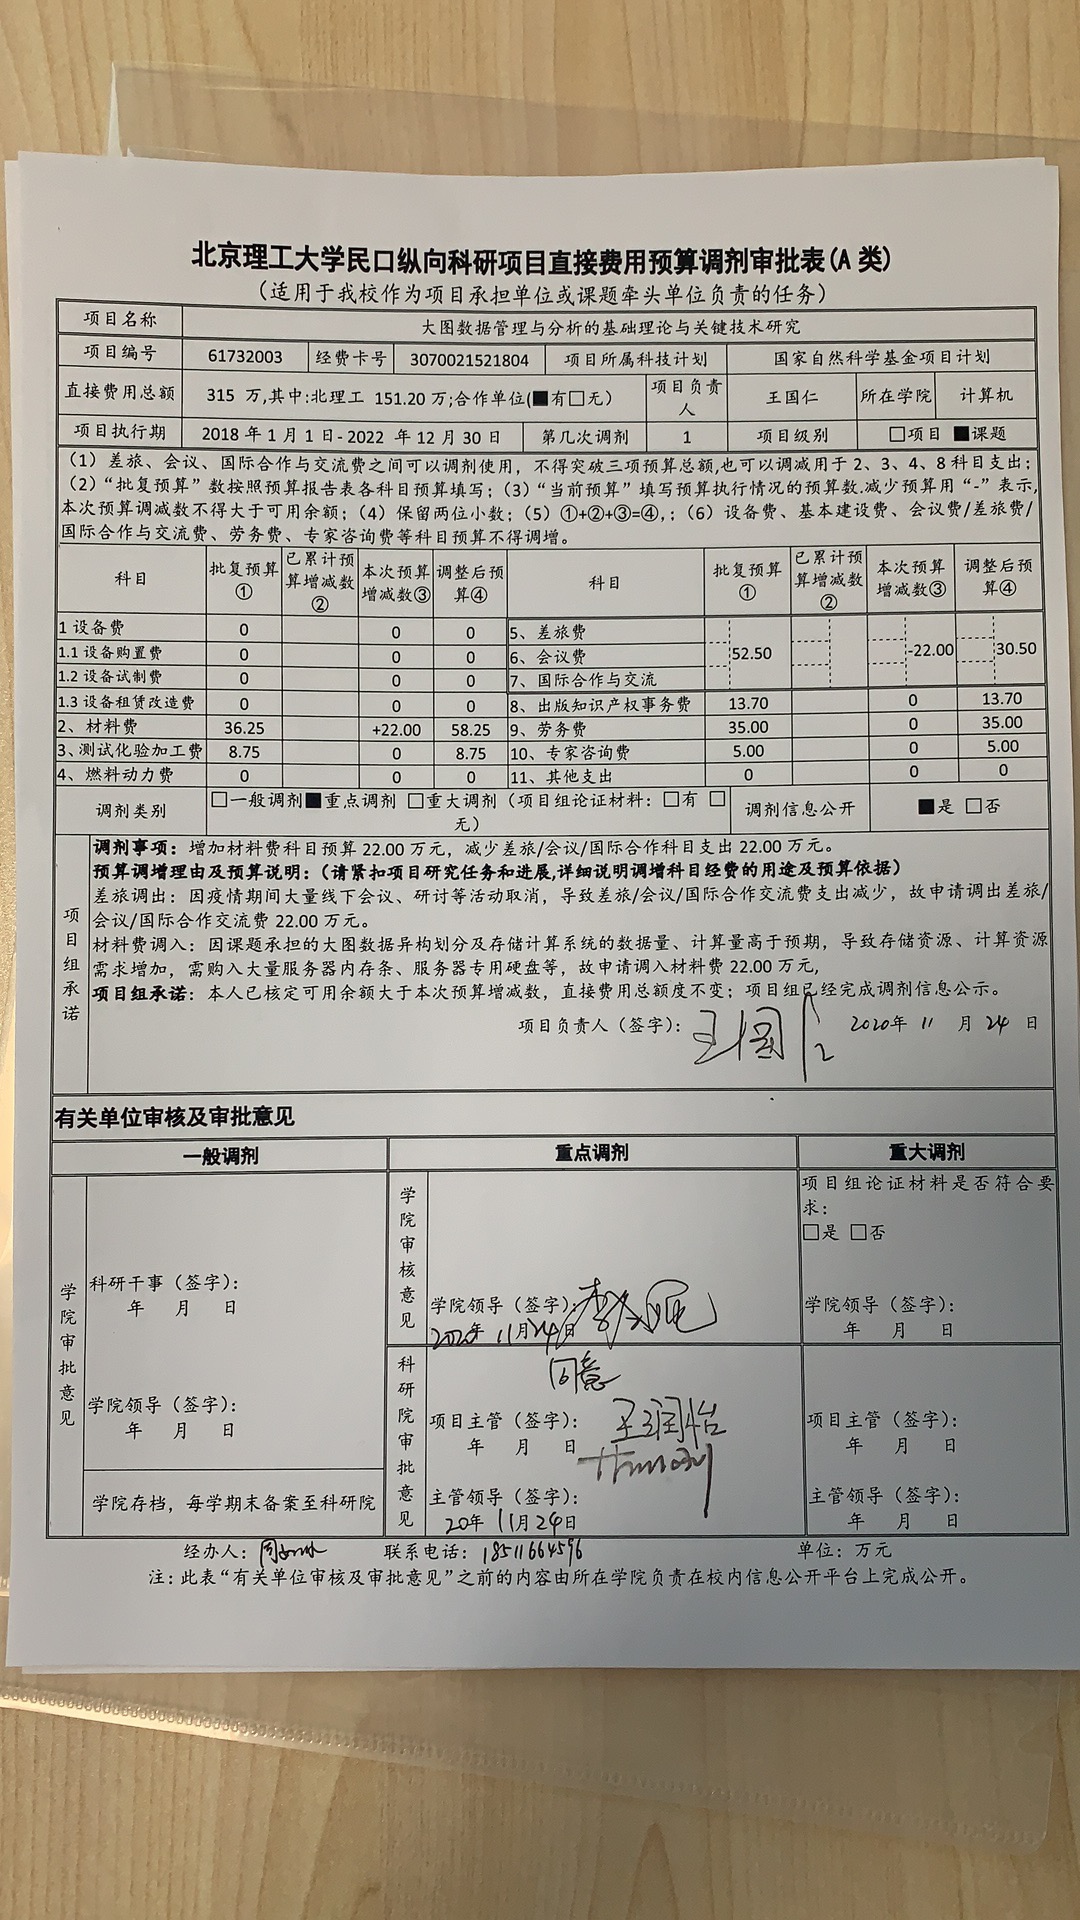 北京理工大学民口纵向科研项目直接费用预算调剂审批表(A 类)
(适用于我校作为项目承担单位或课题牵头单位负责的任务)
项目名称 大图数据管理与分析的基础理论与关键技术研究
项目编号 61732003 经费卡号 3070021521804 项目所属科技计划 国家自然科学基金项目计划
直接费用总额 315 万,其中:北理工 151.20 万;合作单位(■有□无) 项目负责人 王国仁 所在学院 计算机
项目执行期 2018 年 1 月 1 日- 2022 年 12 月 30 日 第几次调剂 1 项目级别 □项目 ■课题
(1)差旅、会议、国际合作与交流费之间可以调剂使用，不得突破三项预算总额,也可以调减用于 2、3、4、8 科目支出；
(2)“批复预算”数按照预算报告表各科目预算填写；(3)“当前预算”填写预算执行情况的预算数.减少预算用“-”表示,
本次预算调减数不得大于可用余额；(4)保留两位小数；(5)①+②+③=④,；(6)设备费、基本建设费、会议费/差旅费/
国际合作与交流费、劳务费、专家咨询费等科目预算不得调增。
科目 批复预算① 已累计预算增减数② 本次预算增减数③ 调整后预算④ 科目 批复预算① 已累计预算增减数② 本次预算增减数③ 调整后预算④
1 设备费 0 0 0 5、差旅费
1.1 设备购置费 0 0 0 6、会议费 52.50 -22.00 30.50
1.2 设备试制费 0 0 0 7、国际合作与交流
1.3 设备租赁改造费 0 0 0 8、出版知识产权事务费 13.70 0 13.70
2、材料费 36.25 +22.00 58.25 9、劳务费 35.00 0 35.00
3、测试化验加工费 8.75 0 8.75 10、专家咨询费 5.00 0 5.00
4、燃料动力费 0 0 0 11、其他支出 0 0 0
调剂类别 □一般调剂■重点调剂 □重大调剂（项目组论证材料：□有 □无） 调剂信息公开 ■是 □否
项目组承诺
调剂事项：增加材料费科目预算 22.00 万元，减少差旅/会议/国际合作科目支出 22.00 万元。
预算调增理由及预算说明：（请紧扣项目研究任务和进展,详细说明调增科目经费的用途及预算依据）
差旅调出：因疫情期间大量线下会议、研讨等活动取消，导致差旅/会议/国际合作交流费支出减少，故申请调出差旅/
会议/国际合作交流费 22.00 万元。
材料费调入：因课题承担的大图数据异构划分及存储计算系统的数据量、计算量高于预期，导致存储资源、计算资源
需求增加，需购入大量服务器内存条、服务器专用硬盘等，故申请调入材料费 22.00 万元,
项目组承诺：本人已核定可用余额大于本次预算增减数，直接费用总额度不变；项目组已经完成调剂信息公示。
项目负责人（签字）：王国仁 2020年 11 月 24 日
有关单位审核及审批意见
一般调剂 重点调剂 重大调剂
学院审批意见
科研干事（签字）：
年 月 日
学院领导（签字）：
年 月 日
学院存档，每学期末备案至科研院
学院审核意见
学院领导（签字）：
2020年 11月24日
科研院审批意见
同意
项目主管（签字）：王润怡
年 月 日
主管领导（签字）：
20年 11月24日
项目组论证材料是否符合要求：
□是 □否
学院领导（签字）：
年 月 日
项目主管（签字）：
年 月 日
主管领导（签字）：
年 月 日
经办人： 联系电话：18511664596 单位：万元
注：此表“有关单位审核及审批意见”之前的内容由所在学院负责在校内信息公开平台上完成公开。